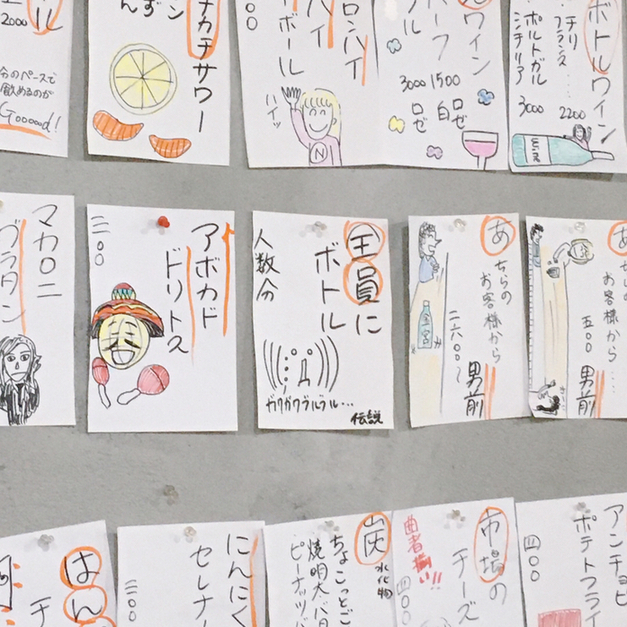 2000
今のペースで
飲めるのが
Gooood!
チカチサワー
ボール
ハイッ
N
ワイン
3000
1500
白
ロゼ
ロゼ
ボトルワイン
チリ
フランス
ポルトガル
3000
2200
マカロニ
グラタン
アボカド
ドリトス
三〇〇
全員に
ボトル
人数分
ガクガクブルブル…
伝説
あちらの
お客様から
二六〇〇〜
男前
あちらの
お客様から…
五〇〇
男前
はん
にんにく
セレナ
三〇〇
炭水化物
ちょこっとご
焼明太バ
ピーナッツバ
市場の
チーズ
曲者揃い!!
四〇〇
アンチョビ
ポテトフライ
四〇〇